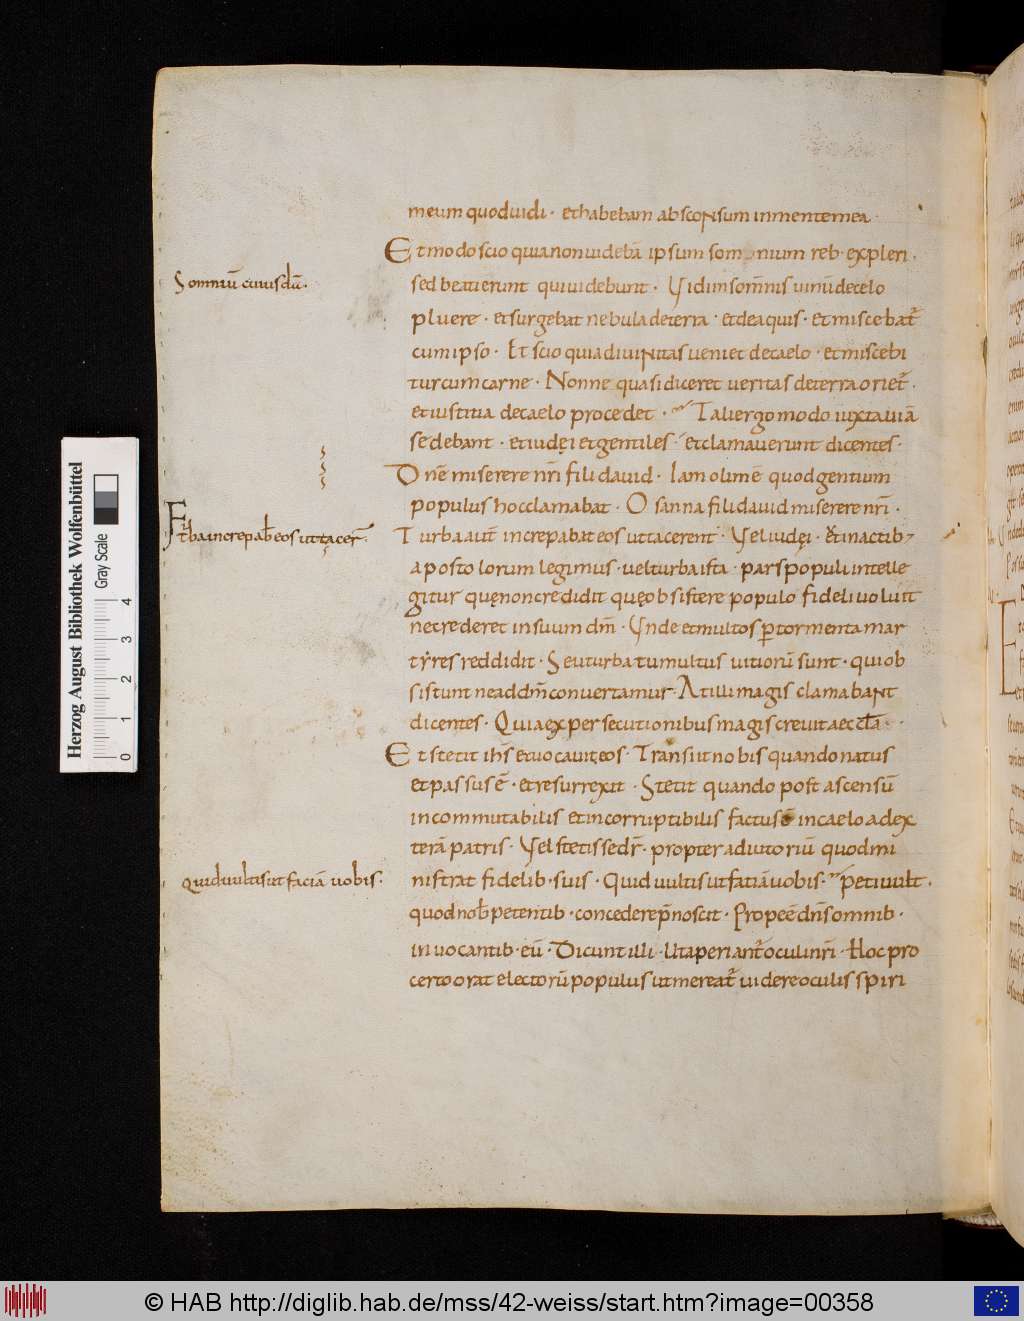 meum quod uidi · et habebam absconsum in mente mea ·
Et modo scio quia non uidebā ipsum somnium reb · expleri ·
Somniū cuiusdā ·
sed beati erunt qui uidebunt · Vidi in somnis uinū de celo
pluere · et surgebat nebula de terra · et de aquis · et miscebat̄
cum ipso · Et scio quia diuinitas ueniet de caelo · et miscebi
tur cum carne · Nonne quasi diceret ueritas de terra oriet̄ ·
et iustitia de caelo procedet · Tali ergo modo iuxta uiā
sedebant · et iudęi et gentiles · et clamauerunt dicentes ·
Dn̄e miserere nr̄i fili dauid · Iam olim ē quod gentium
populus hoc clamabat · Osanna fili dauid miserere nr̄i ·
Et t̄ba increpab̄ eos ut tacer̄ ·
Turba aut̄ increpabat eos ut tacerent · Vel iudęi · et in actib ;
apostolorum legimus · uel turba ista · pars populi intelle
gitur quę non credidit quę obsistere populo fideli uoluit
ne crederet in suum dm̄ · Vnde et multos ꝑ tormenta mar
tyres reddidit · Seu turba tumultus uitiorū sunt · qui ob
sistunt ne ad dm̄ conuertamur · At illi magis clamabant
dicentes · Quia ex persecutionibus magis creuit aeccła ·
Et stetit ihs̄ et uocauit eos · Transiit nobis quando natus
et passus ē · et resurrexit · Stetit quando post ascensū
incommutabilis et incorruptibilis factus ē in caelo ad dex
terā patris · Vel stetit sedr̄ · propter adiutoriū quod mi
Quid uultis ut faciā uobis ·
nistrat fidelib · suis · Quid uultis ut fatiā uobis · peti uult ·
quod nob̄ petentib · concedere p̄noscit · Prope ē dn̄s omnib ·
inuocantib · eū · Dicunt illi · Ut aperiant̄ oculi nr̄i · Hoc pro
certo orat electorū populus ut mereat̄ uidere oculis spiri
Herzog August Bibliothek Wolfenbüttel
Gray Scale
0 1 2 3 4
© HAB http://diglib.hab.de/mss/42-weiss/start.htm?image=00358